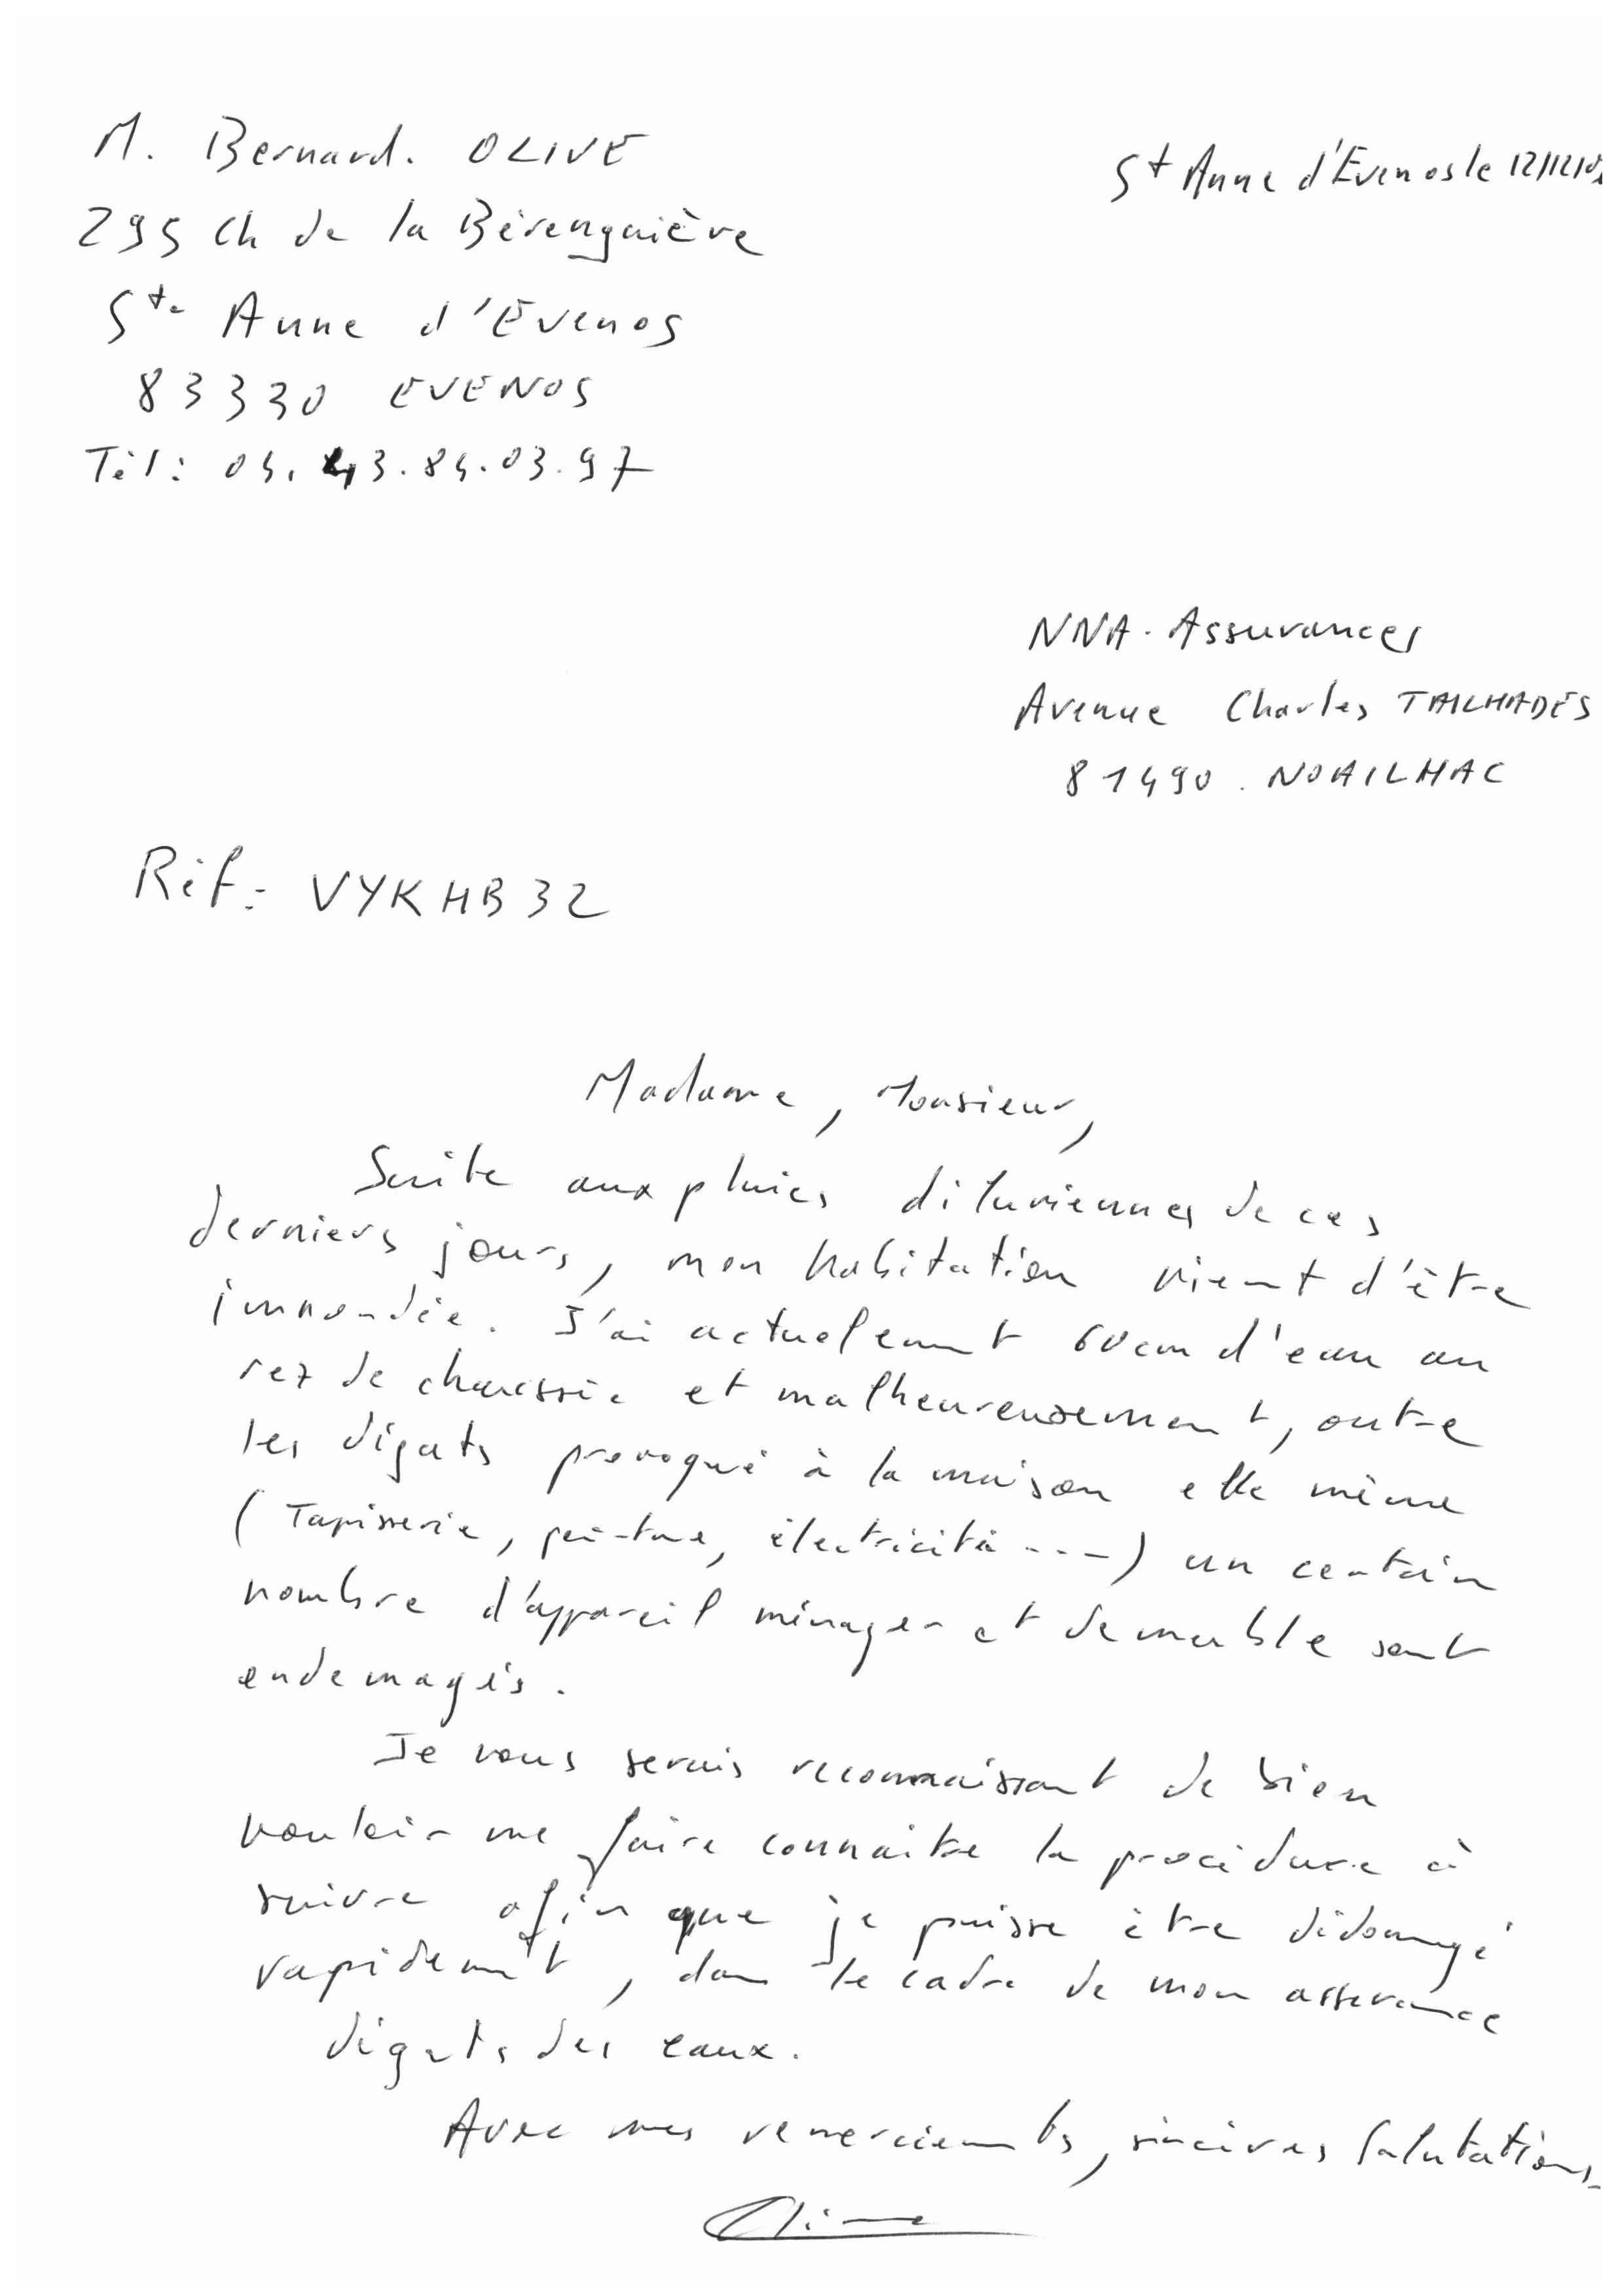 M. Bernard. OLIVE
St Anne d'Evenos le 12/12/0
295 Ch de la Bérenguière
Ste Anne d'Evenos
83330 EVENOS
Tél: 04.43.84.03.97
NNA. Assurances
Avenue Charles TAILHADES
81490. NOAILHAC
Réf: VYKHB32
Madame, Monsieur,
Suite aux pluies diluviennes de ces
derniers jours, mon habitation vient d'être
innondée. J'ai actuelement 60cm d'eau au
rez de chaussée et malheureusement, outre
les dégats provoqué à la maison elle même
(Tapisserie, peinture, électricité ---) un certain
nombre d'appareil ménager et de meuble sont
endemagés.
Je vous serais reconnaissant de bien
vouloir me faire connaitre la procédure à
suivre afin que je puisse être dédomagé
rapidement, dans le cadre de mon assurance
dégats des eaux.
Avec mes remerciements, sincères salutations.
Olive